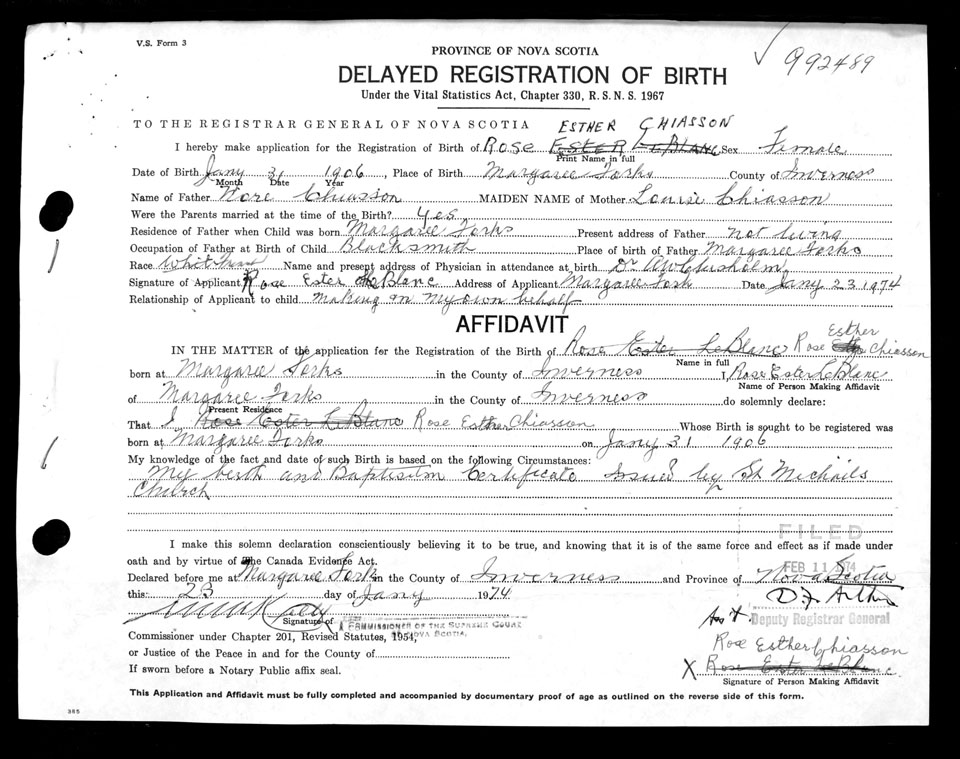 V.S. Form 3
992489
PROVINCE OF NOVA SCOTIA
DELAYED REGISTRATION OF BIRTH
Under the Vital Statistics Act, Chapter 330, R.S.N.S. 1967
TO THE REGISTRAR GENERAL OF NOVA SCOTIA ESTHER CHIASSON
I hereby make application for the Registration of Birth of ROSE ESTER LeBLANC Sex Female
Print Name in full
Date of Birth Jany 31 1906, Place of Birth Margaree Forks County of Inverness
Month Date Year
Name of Father Chiasson MAIDEN NAME of Mother Louise Chiasson
Were the Parents married at the time of the Birth? Yes
Residence of Father when Child was born Margaree Forks Present address of Father Not living
Occupation of Father at Birth of Child Blacksmith Place of birth of Father Margaree Forks
Race White Name and present address of Physician in attendance at birth Dr Chisholm
Signature of Applicant Rose Ester LeBlanc Address of Applicant Margaree Fork Date Jany 23 1974
Relationship of Applicant to child making on my own behalf
AFFIDAVIT
Esther
IN THE MATTER of the application for the Registration of the Birth of Rose Ester LeBlanc Rose Chiasson
Name in full
born at Margaree Forks in the County of Inverness I, Rose Ester LeBlanc
Name of Person Making Affidavit
of Margaree Forks in the County of Inverness do solemnly declare:
Present Residence
That I Rose Ester LeBlanc Rose Esther Chiasson Whose Birth is sought to be registered was
born at Margaree Forks on Jany 31 1906
My knowledge of the fact and date of such Birth is based on the following Circumstances:
My birth and Baptisum Certificate Issued by St Michaels
Church
FILED
I make this solemn declaration conscientiously believing it to be true, and knowing that it is of the same force and effect as if made under
oath and by virtue of The Canada Evidence Act.
FEB 11 1974
Declared before me at Margaree Forks in the County of Inverness and Province of Nova Scotia
this: 23 day of Jany 1974
Signature of
A COMMISSIONER OF THE SUPREME COURT
OF NOVA SCOTIA.
Deputy Registrar General
Commissioner under Chapter 201, Revised Statutes, 1954,
Rose Esther Chiasson
or Justice of the Peace in and for the County of
X Rose Ester LeBlanc
If sworn before a Notary Public affix seal.
Signature of Person Making Affidavit
This Application and Affidavit must be fully completed and accompanied by documentary proof of age as outlined on the reverse side of this form.
385